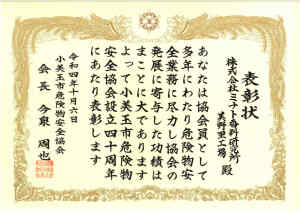 表彰状
株式会社ミナト医科研究所
美野里工場 殿
あなたは協会員として
多年にわたり危険物安
全業務に尽力し協会の
発展に寄与した功績は
まことに大であります
よって小美玉市危険物
安全協会設立四十周年
にあたり表彰します
令和四年十月六日
小美玉市危険物安全協会
会長 今泉 周也